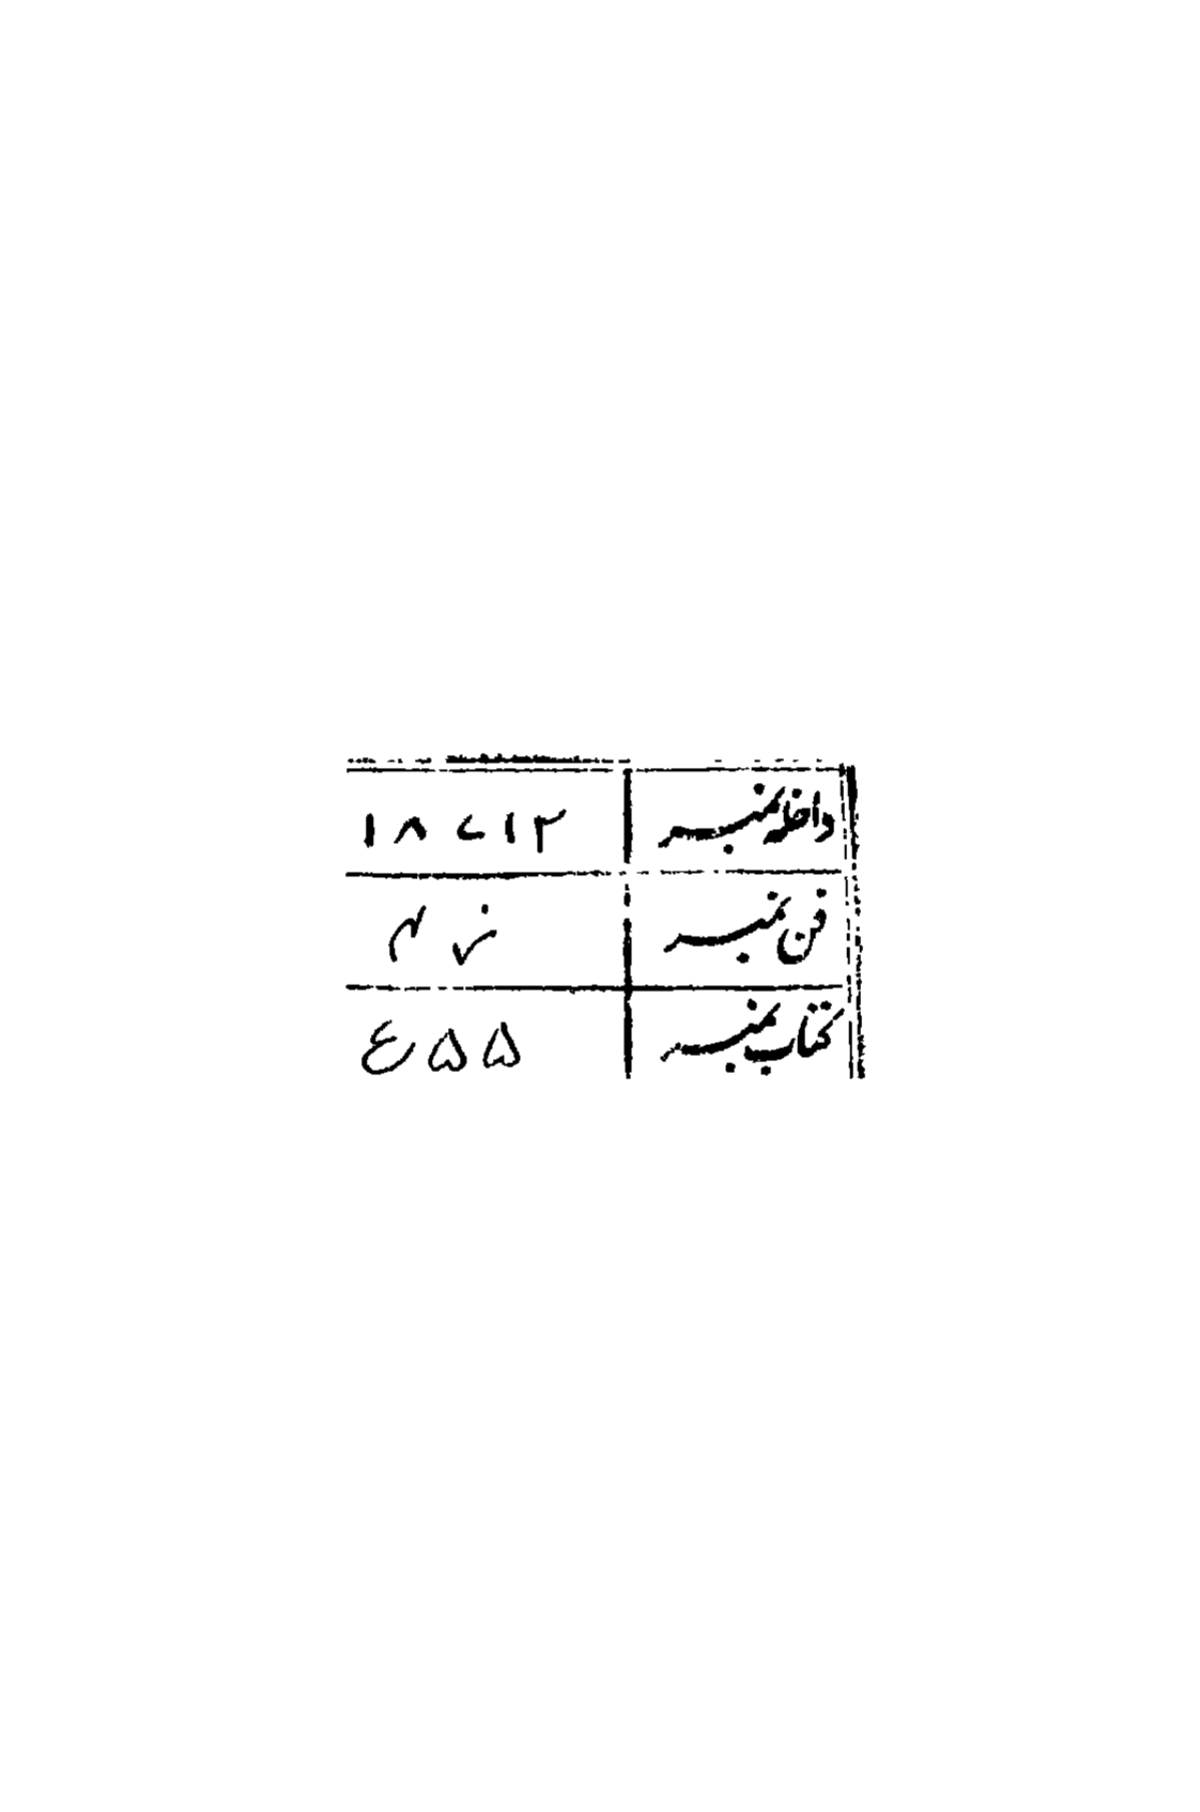 داخلہ نمبر ۱۸۷۱۲
فن نمبر
کتاب نمبر ۴۵۵